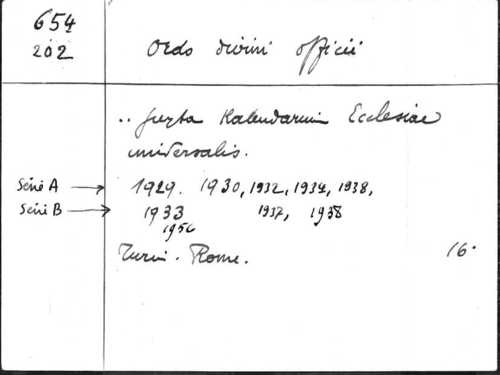 654
202
Ordo divini officii
.. juxta Kalendarium Ecclesiae
universalis.
Série A → 1929. 1930, 1932, 1934, 1938,
Série B → 1933 1937, 1938
1956
Turin. Rome. 16.